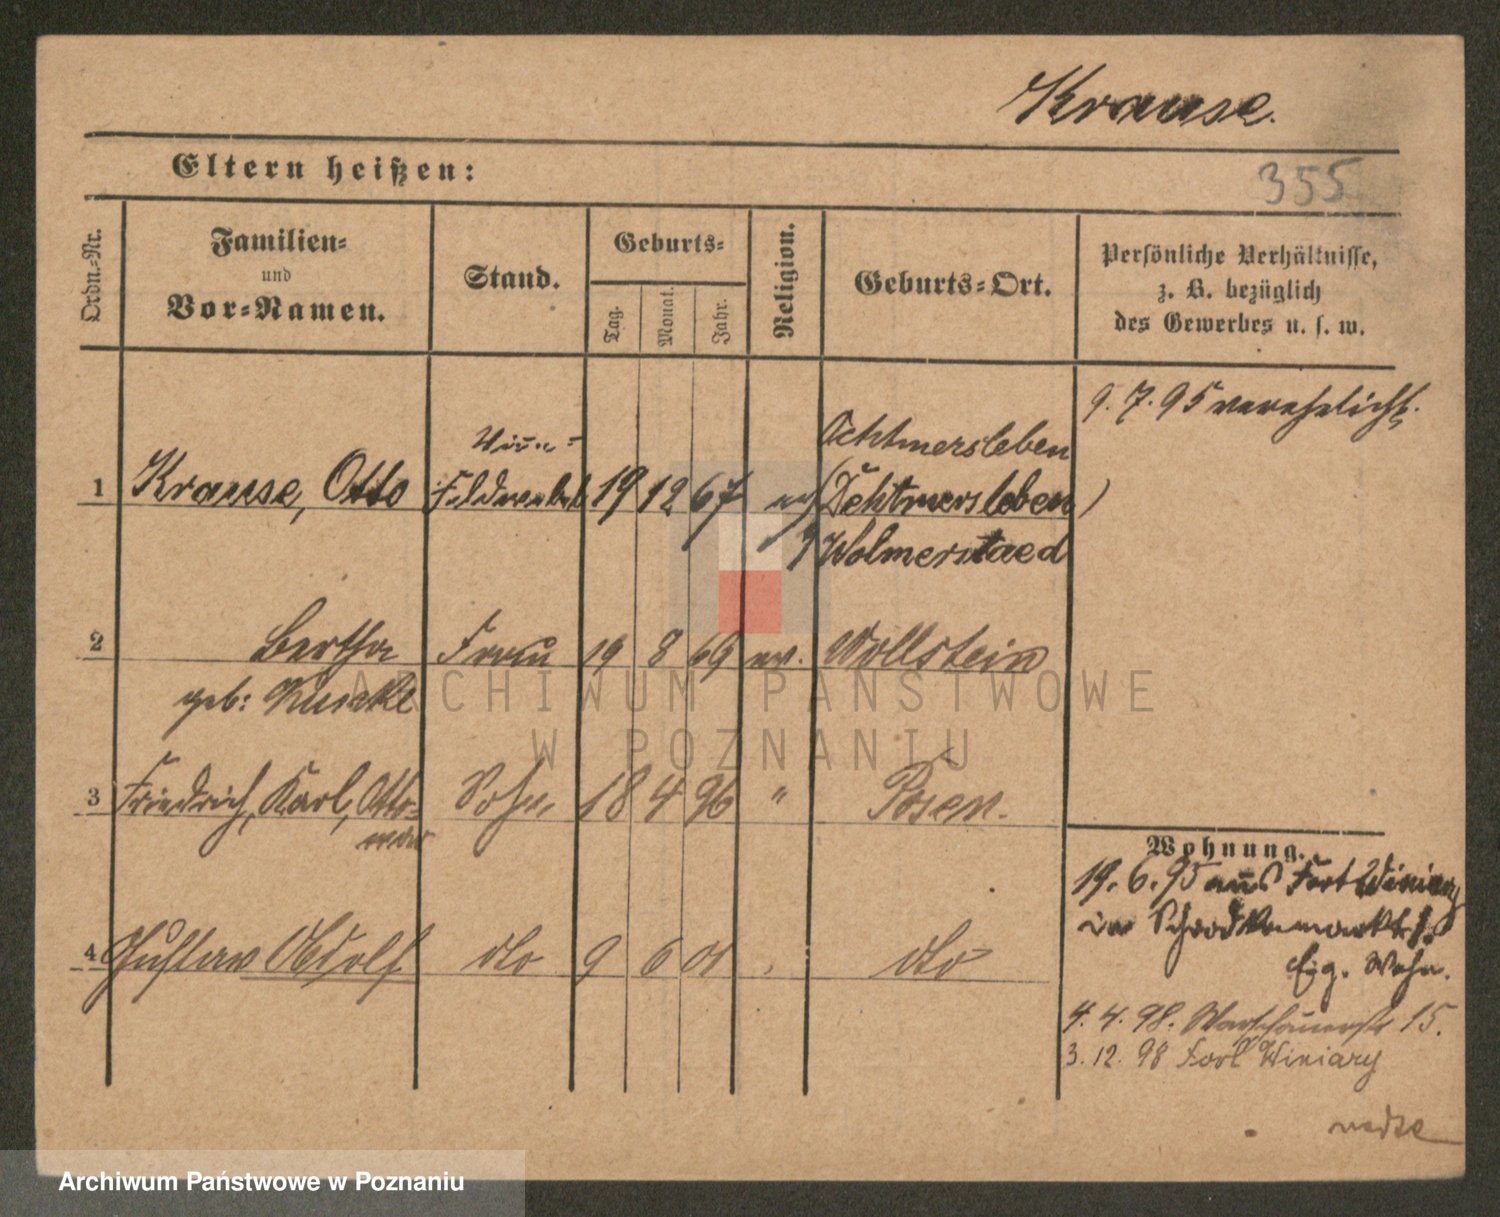 Krause.
Eltern heißen:
355
Ordn.-Nr.
Familien-
und
Vor-Namen.
Stand.
Geburts-
Tag.
Monat.
Jahr.
Religion.
Geburts-Ort.
Persönliche Verhältnisse,
z. B. bezüglich
des Gewerbes u. s. w.
9. 7. 95 verehelicht.
Ochtmersleben
1 Krause, Otto Feldwebel 19 12 67 ev (Dehtmersleben)
Wolmerstaed
2 Bertha Frau 19 8 69 ev. Wollstein
geb:
3 Friedrich, Karl, Otto- Sohn 18 4 96 " Posen.
mar
4 Gustav Adolf dto 9 6 01 dto
Wohnung.
19. 6. 95 aus Fort Winiary
in
Eig. Wohn.
4. 4. 98. Warschauerstr 15.
3. 12. 98 Fort Winiary
ARCHIWUM PAŃSTWOWE
W POZNANIU
Archiwum Państwowe w Poznaniu